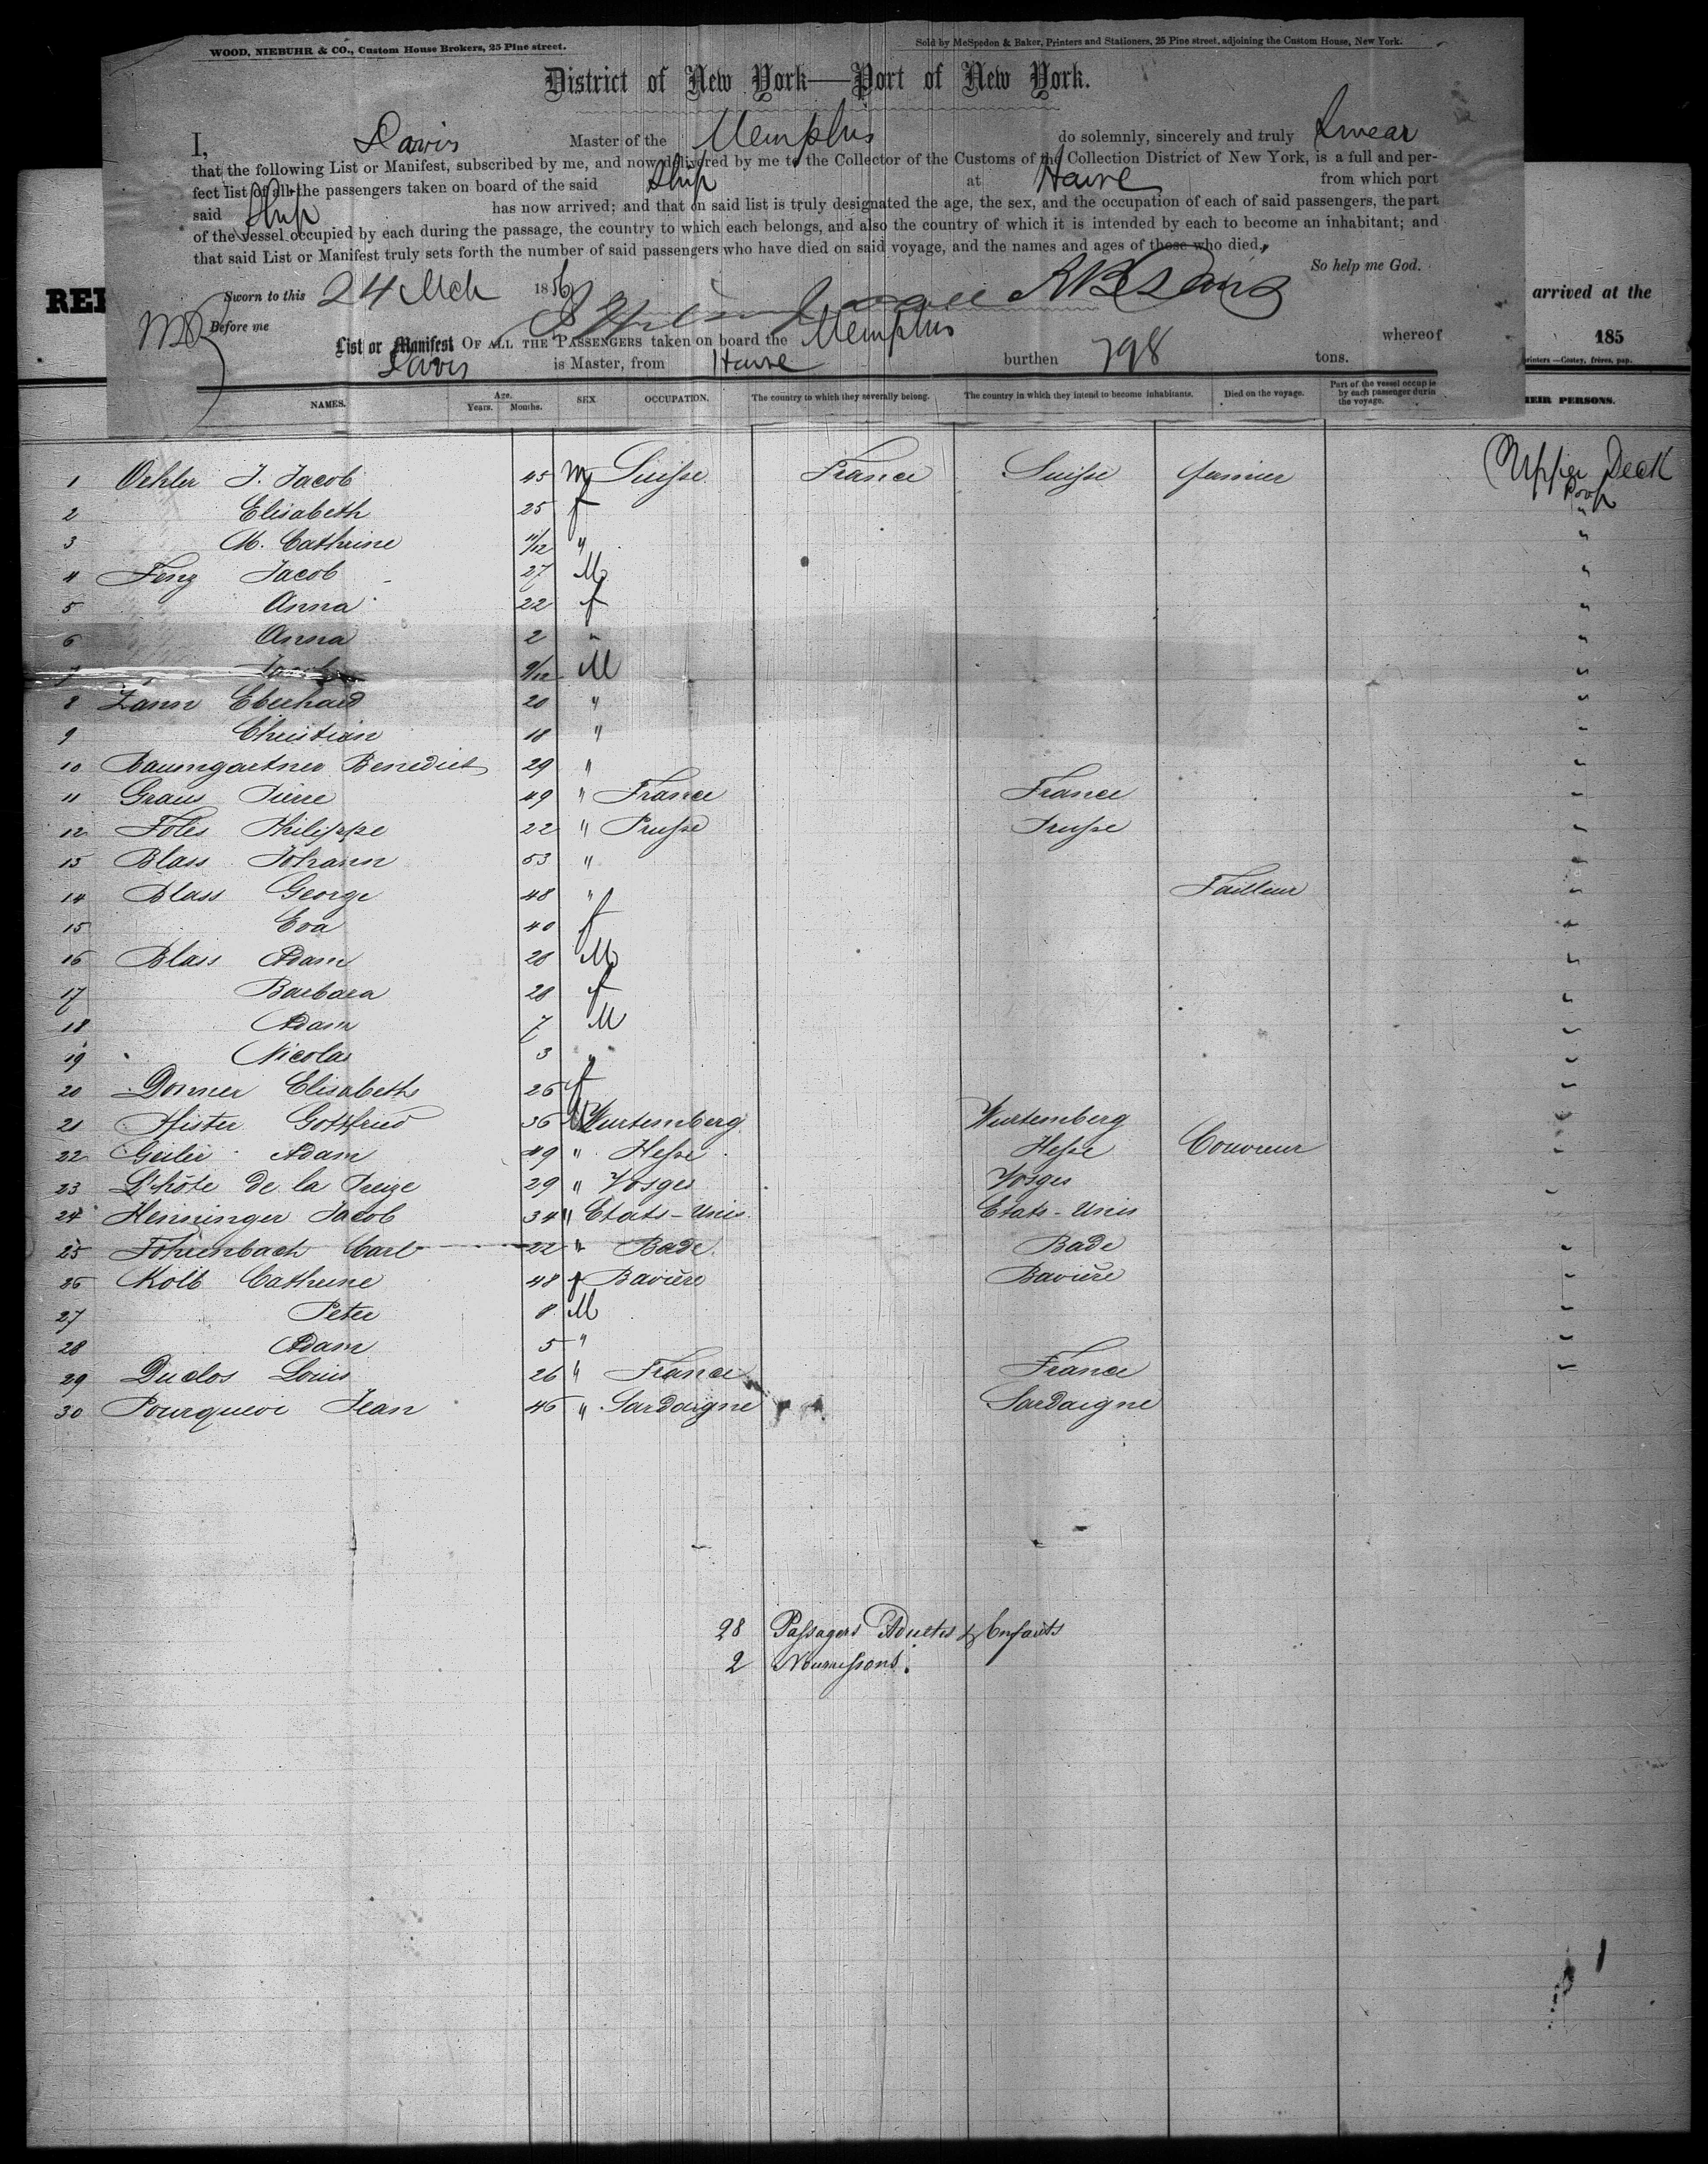 WOOD, NIEBUHR & CO., Custom House Brokers, 25 Pine street.
Sold by McSpedon & Baker, Printers and Stationers, 25 Pine street, adjoining the Custom House, New York.
District of New York—Port of New York.
I, Davis Master of the Memphis do solemnly, sincerely and truly Swear
that the following List or Manifest, subscribed by me, and now delivered by me to the Collector of the Customs of the Collection District of New York, is a full and per-
fect list of all the passengers taken on board of the said Ship at Havre from which port
said Ship has now arrived; and that on said list is truly designated the age, the sex, and the occupation of each of said passengers, the part
of the vessel occupied by each during the passage, the country to which each belongs, and also the country of which it is intended by each to become an inhabitant; and
that said List or Manifest truly sets forth the number of said passengers who have died on said voyage, and the names and ages of those who died.
So help me God.
REI
arrived at the
Sworn to this 24 Mch 1856
Before me
List or Manifest OF ALL THE PASSENGERS taken on board the Memphis whereof
185
Davis is Master, from Havre burthen 798 tons.
NAMES. Age. Years. Months. SEX OCCUPATION. The country to which they severally belong. The country in which they intend to become inhabitants. Died on the voyage. Part of the vessel occup ie by each passenger durin the voyage.
HEIR PERSONS.
1 Oehler J. Jacob 45 M Suisse France Suisse Upper Deck
Poop
2 Elisabeth 25 f "
3 M. Cathrine 11/12 " "
4 Jacob 27 M "
5 Anna 22 f "
6 Anna 2 " "
7 Jacob 9/12 M "
8 Zann Eberhard 20 " "
9 Christian 18 " "
10 Baumgartner Benedict 29 " "
11 Graus Pierre 49 " France France "
12 Folis Philippe 22 " Prusse Prusse "
13 Blass Johann 53 " "
14 Blass George 48 " Tailleur "
15 Eva 40 f "
16 Blass Adam 28 M "
17 Barbara 28 f "
18 Adam 7 M "
19 Nicolas 3 " "
20 Donner Elisabeth 26 f "
21 Pfister Gottfried 36 M Wurtemberg Wurtemberg "
22 Geiler Adam 49 " Hesse Hesse Couvreur "
23 L'hôte de la 29 " Vosges Vosges "
24 Henninger Jacob 34 " Etats-Unis Etats-Unis
25 Fohrenbach Carl 22 " Bade Bade "
26 Kolb Cathrine 48 f Bavière Bavière "
27 Peter 8 M "
28 Adam 5 " "
29 Duclos Louis 26 " France France "
30 Jean 46 " Sardaigne Sardaigne
28 Passagers Adultes & Enfants
2 Nourrissons.